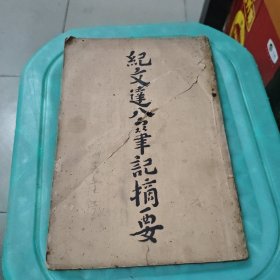 紀文達公筆記摘要